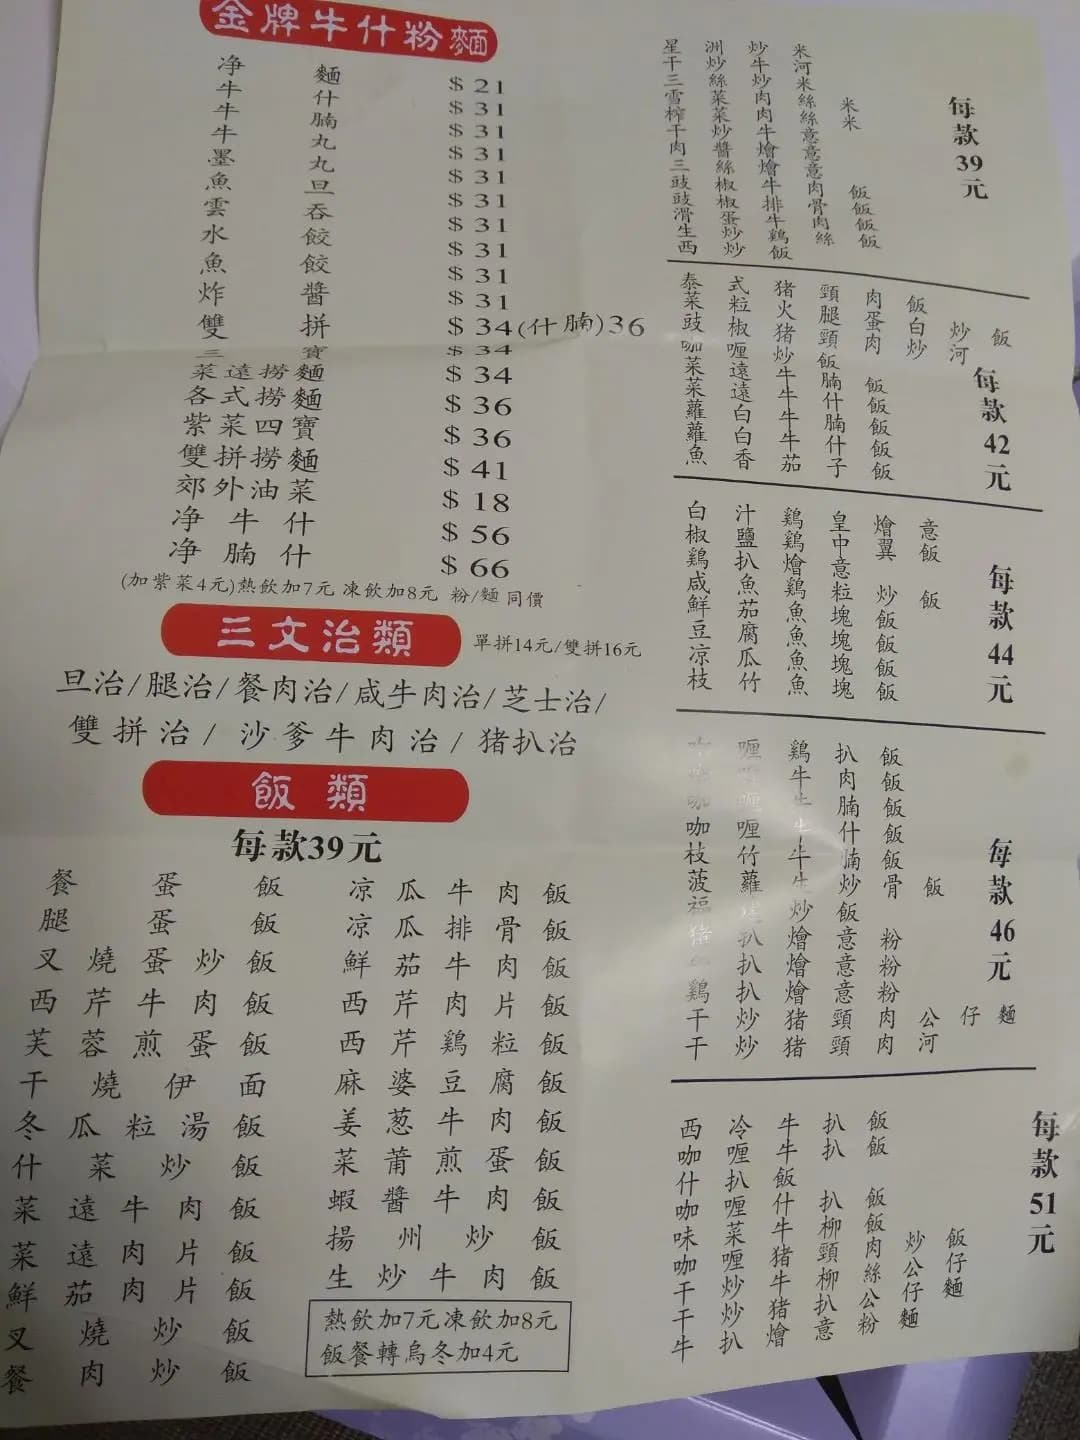 金牌牛什粉麵
净麵 $21
牛什 $31
牛腩 $31
牛丸 $31
墨丸 $31
魚旦 $31
雲吞 $31
水餃 $31
魚餃 $31
炸醬 $31
雙拼 $34(什腩)36
三寶 $34
菜遠撈麵 $34
各式撈麵 $36
紫菜四寶 $36
雙拼撈麵 $41
郊外油菜 $18
净牛什 $56
净腩什 $66
(加紫菜4元)熱飲加7元 凍飲加8元 粉/麵同價
三文治類 單拼14元/雙拼16元
旦治/腿治/餐肉治/咸牛肉治/芝士治/
雙拼治/沙爹牛肉治/猪扒治
飯類
每款39元
餐蛋飯
腿蛋飯
叉燒蛋炒飯
西芹牛肉飯
芙蓉煎蛋飯
干燒伊面
冬瓜粒湯飯
什菜炒飯
菜遠牛肉飯
菜遠肉片飯
鮮茄肉片飯
叉燒炒飯
餐肉炒飯
凉瓜牛肉飯
凉瓜排骨飯
鮮茄牛肉飯
西芹肉片飯
西芹鷄粒飯
麻婆豆腐飯
姜葱牛肉飯
菜莆煎蛋飯
蝦醬牛肉飯
揚州炒飯
生炒牛肉飯
熱飲加7元凍飲加8元
飯餐轉烏冬加4元
每款39元
星洲炒米
干炒牛河
三絲炒米
雪菜肉絲米
榨菜肉絲米
干炒牛意
肉醬燴意
三絲燴意
豉椒牛肉飯
豉椒排骨飯
滑蛋牛肉飯
生炒鷄絲飯
西炒飯
每款42元
泰式猪頸肉飯
菜粒火腿蛋白炒飯
豉椒猪頸肉炒河
咖喱炒飯
菜遠牛腩飯
菜遠牛什飯
蘿白牛腩飯
蘿白牛什飯
魚香茄子飯
每款44元
白汁鷄皇燴意
椒鹽鷄中翼飯
鷄扒燴意
咸魚鷄粒炒飯
鮮茄魚塊飯
豆腐魚塊飯
凉瓜魚塊飯
枝竹魚塊飯
每款46元
咖喱鷄扒飯
咖喱牛肉飯
咖喱牛腩飯
咖喱牛什飯
枝竹牛腩飯
菠蘿生炒骨飯
福建炒飯
猪扒燴意粉
扒燴意粉
鷄扒燴意粉
干炒猪頸肉公仔麵
干炒猪頸肉河
每款51元
西冷牛扒飯
咖喱牛扒飯
什扒飯
咖喱什扒飯
味菜牛柳飯
咖喱猪頸肉炒飯
干炒牛柳絲公仔麵
干炒猪扒公仔麵
牛扒燴意粉